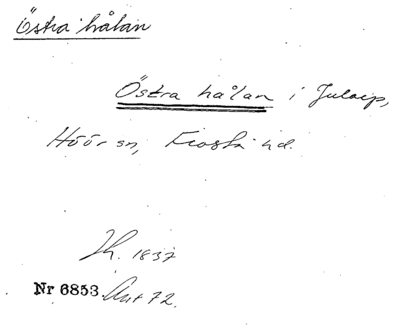 Östra hålan
Östra hålan i Jularp,
Höör sn, Frosta hd.
Th. 1837
Nr 6853. Ant 72.